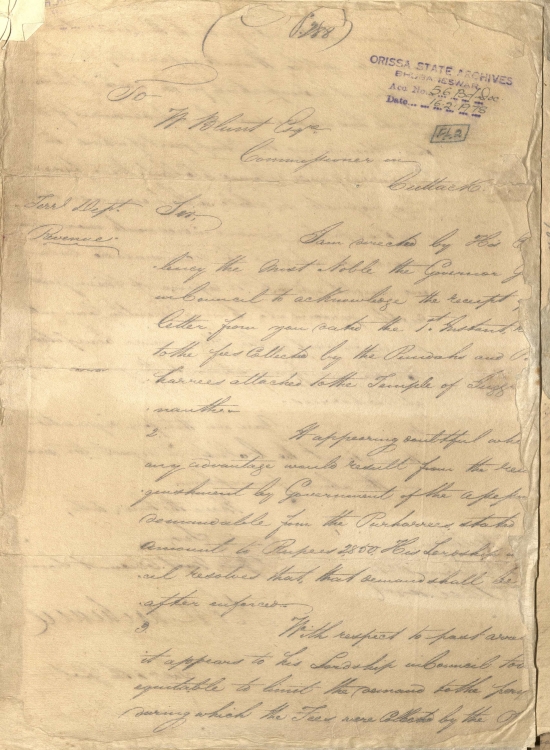 To
W Blunt Esqre
Commissioner in
Cuttack
ORISSA STATE ARCHIVES
BHUBANESWAR
Acc No.
Date
Terrl Dept.
Revenue
Sir,
I am directed by His
lency the Most Noble the Governor G
in Council to acknowledge the receipt
letter from you dated the 1st Instant,
to the fees Collected by the Pundahs and P
harrees attached to the Temple of Jugge
nauth
2 It appearing doubtful whe
any advantage would result from the
quishment by Government of the
demandable from the Purharrees stated
amount to Rupees 2850, His Lordship
cil resolves that, that demand shall be
after enforced
3 With respect to past
it appears to his Lordship in Council to
equitable to limit the demand to the
during which the Fees were Collected by the P